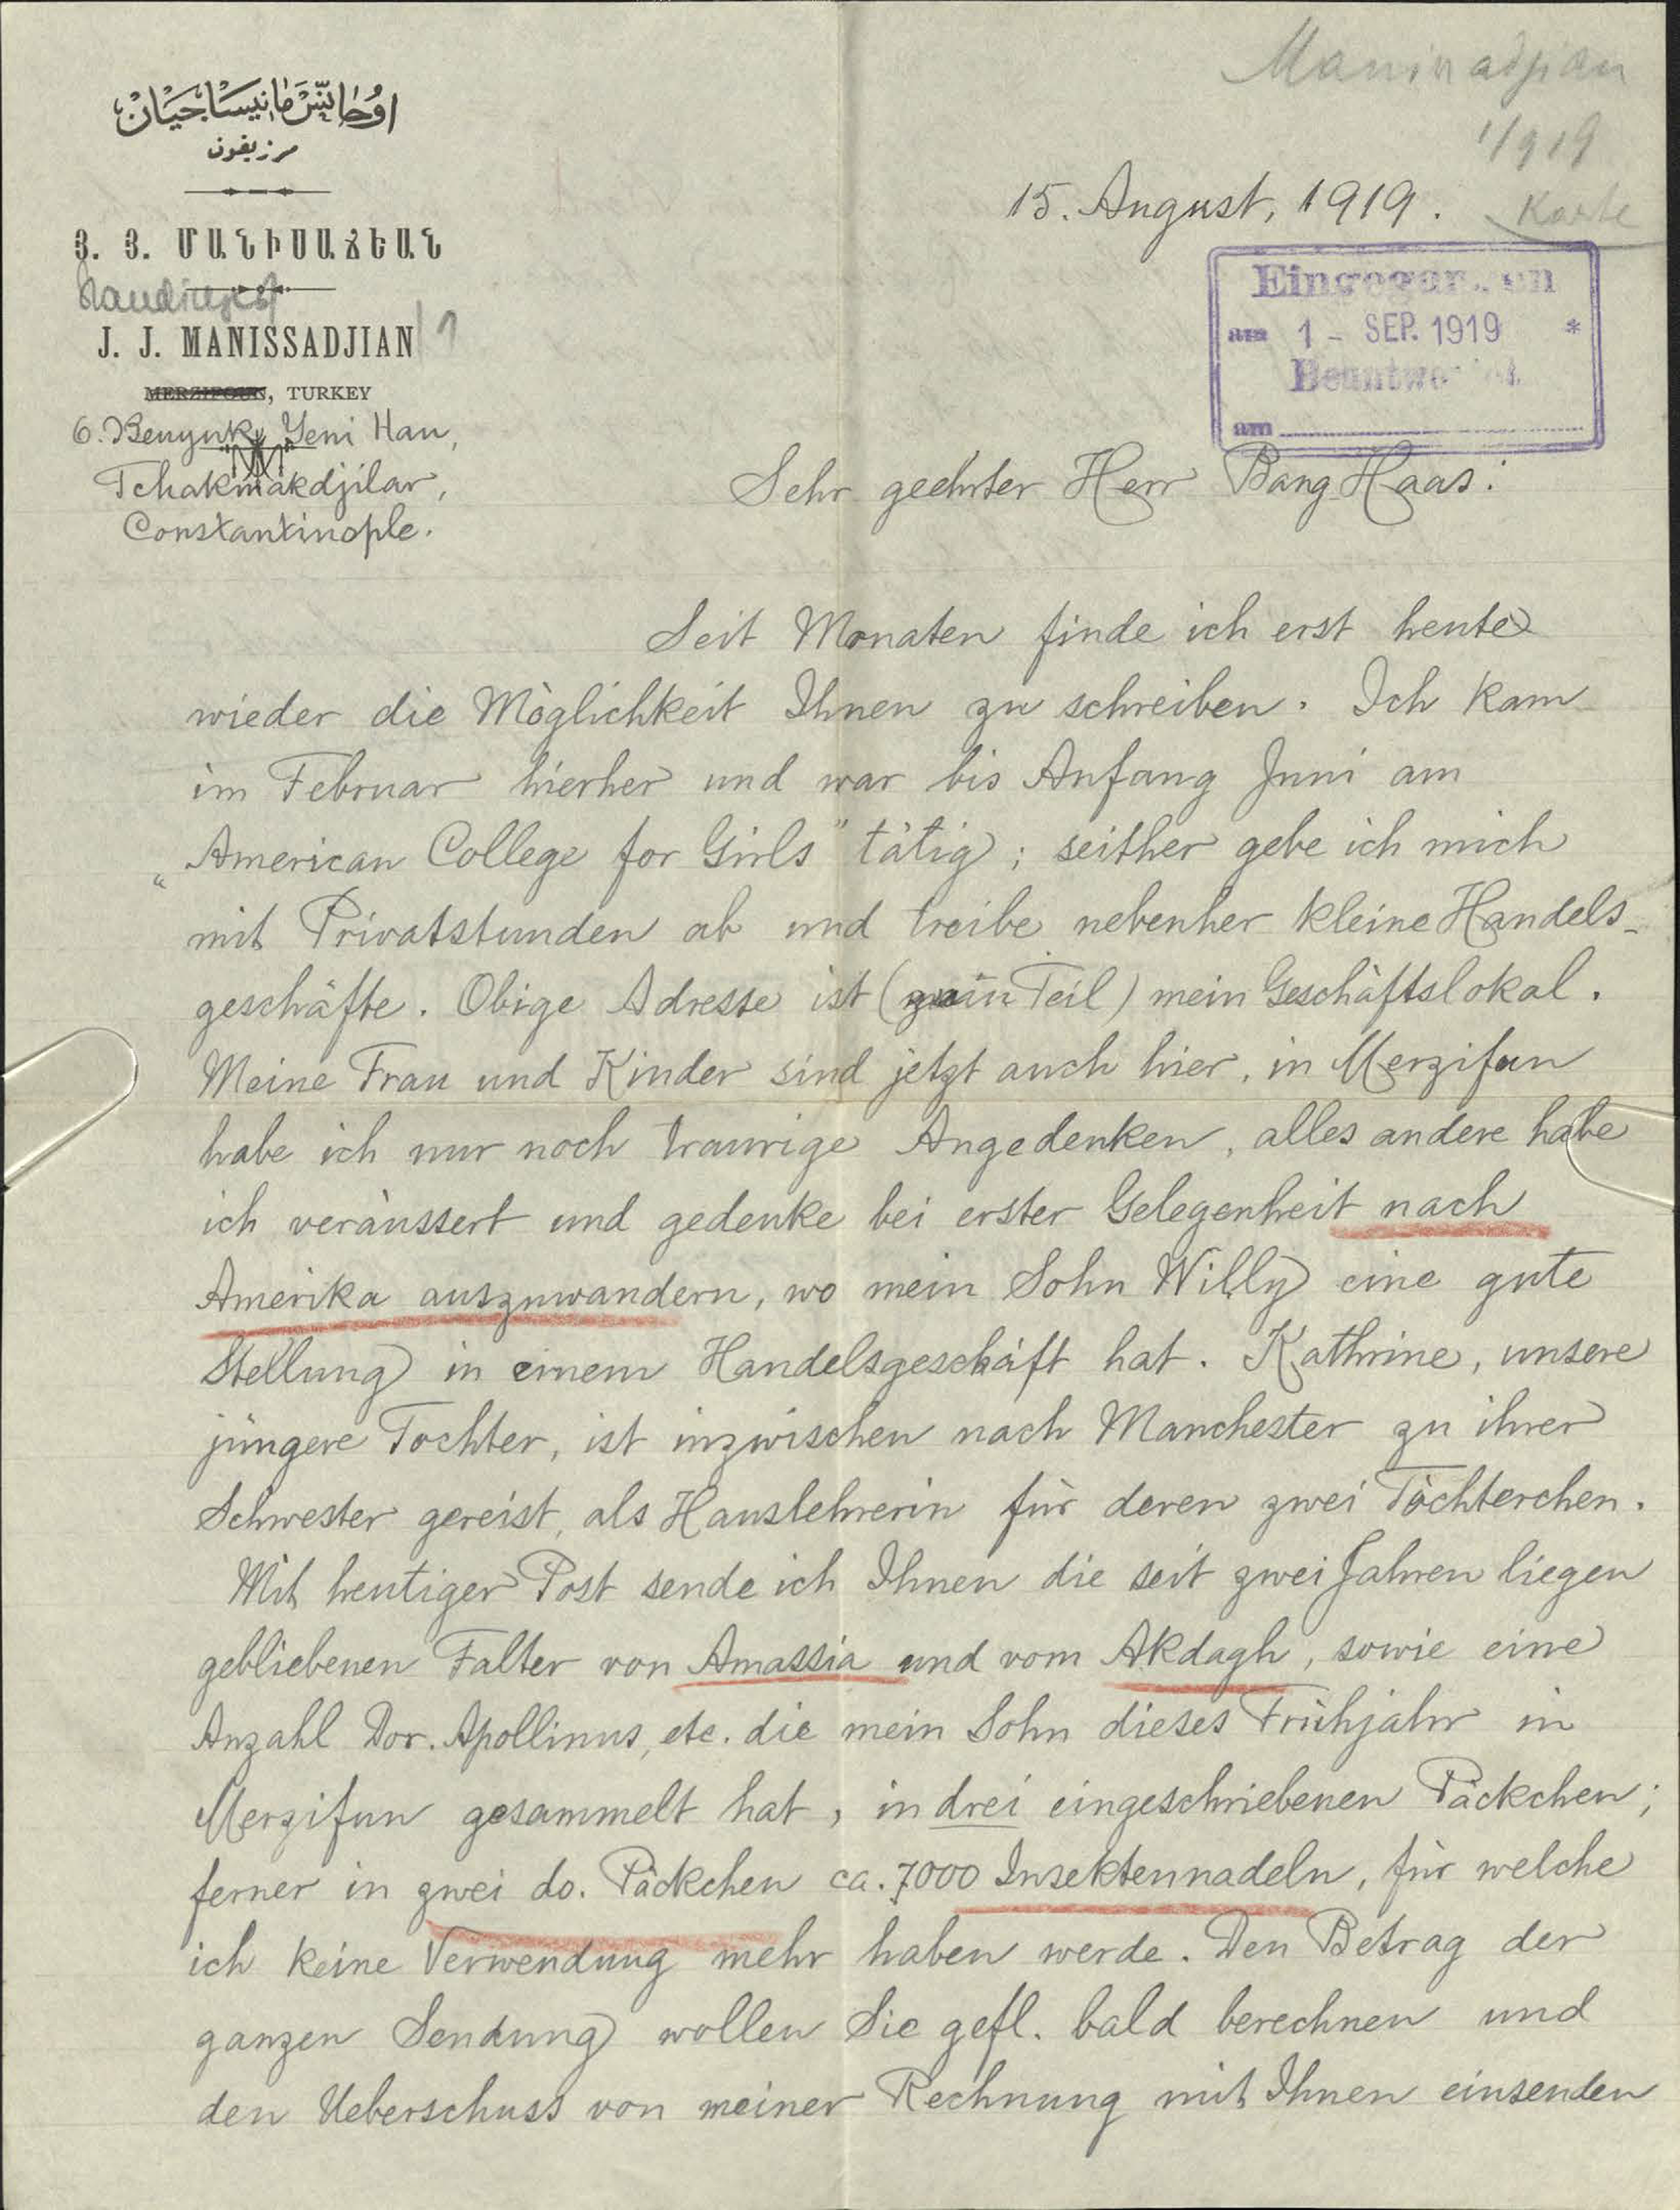 اوحانّس مانيساجيان
مرزيفون
Յ. Յ. ՄԱՆԻՍԱՃԵԱՆ
J. J. MANISSADJIAN
MERZIFOUN, TURKEY
6. Beuyuk Yeni Han,
Tchakmakdjilar,
Constantinople.
1919
Karte
15. August, 1919.
Eingegangen
am 1 - SEP. 1919 *
Beantwortet
am
Sehr geehrter Herr Bang Haas:
Seit Monaten finde ich erst heute
wieder die Möglichkeit Ihnen zu schreiben. Ich kam
im Februar hierher und war bis Anfang Juni am
„American College for Girls" tätig; seither gebe ich mich
mit Privatstunden ab und treibe nebenher kleine Handels-
geschäfte. Obige Adresse ist (zum Teil) mein Geschäftslokal.
Meine Frau und Kinder sind jetzt auch hier, in Merzifun
habe ich nur noch traurige Angedenken, alles andere habe
ich veräussert und gedenke bei erster Gelegenheit nach
Amerika auszuwandern, wo mein Sohn Willy eine gute
Stellung in einem Handelsgeschäft hat. Kathrine, unsere
jüngere Tochter, ist inzwischen nach Manchester zu ihrer
Schwester gereist, als Hauslehrerin für deren zwei Töchterchen.
Mit heutiger Post sende ich Ihnen die seit zwei Jahren liegen
gebliebenen Falter von Amassia und vom Akdagh, sowie eine
Anzahl Dor. Apollinus, etc. die mein Sohn dieses Frühjahr in
Merzifun gesammelt hat, in drei eingeschriebenen Päckchen;
ferner in zwei do. Päckchen ca. 7000 Insektennadeln, für welche
ich keine Verwendung mehr haben werde. Den Betrag der
ganzen Sendung wollen Sie gefl. bald berechnen und
den Ueberschuss von meiner Rechnung mit Ihnen einsenden